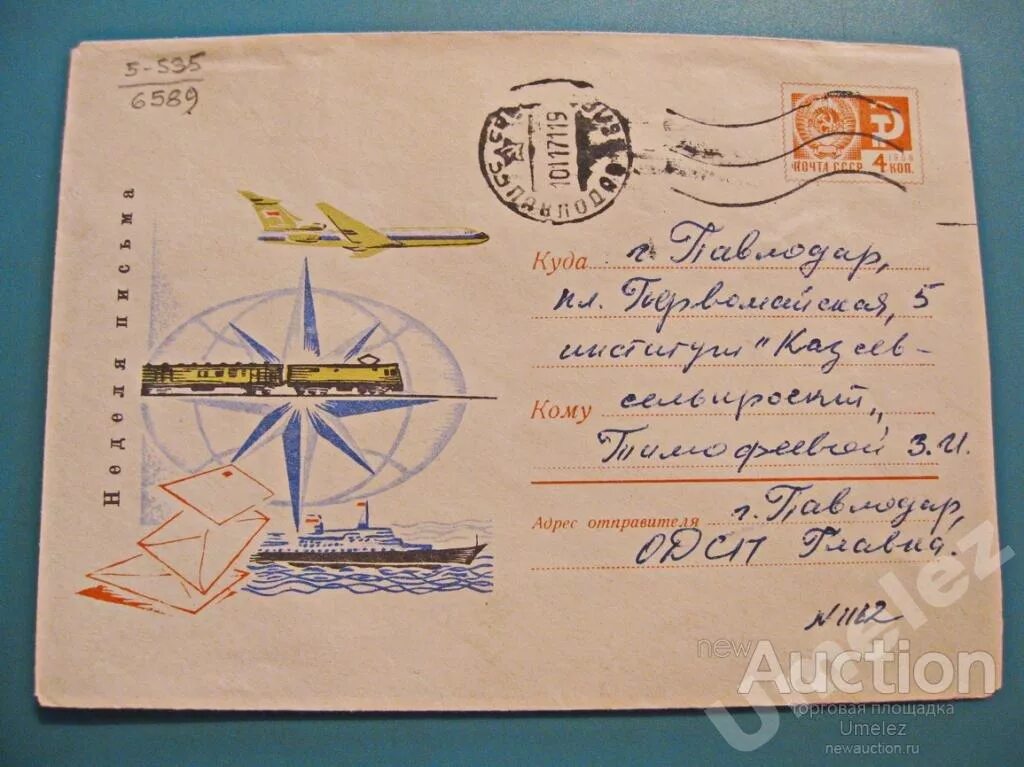 5-535
6589
Неделя письма
ПАВЛОДАР
ПОЧТА СССР
1966
4 коп.
Куда г. Павлодар,
пл. Первомайская, 5
институт "Казсев-
Кому сельпроект"
Тимофеевой З.И.
Адрес отправителя г. Павлодар,
ОДСП Главна.
N 1162
newAuction
торговая площадка
Umelez
newauction.ru
Umelez